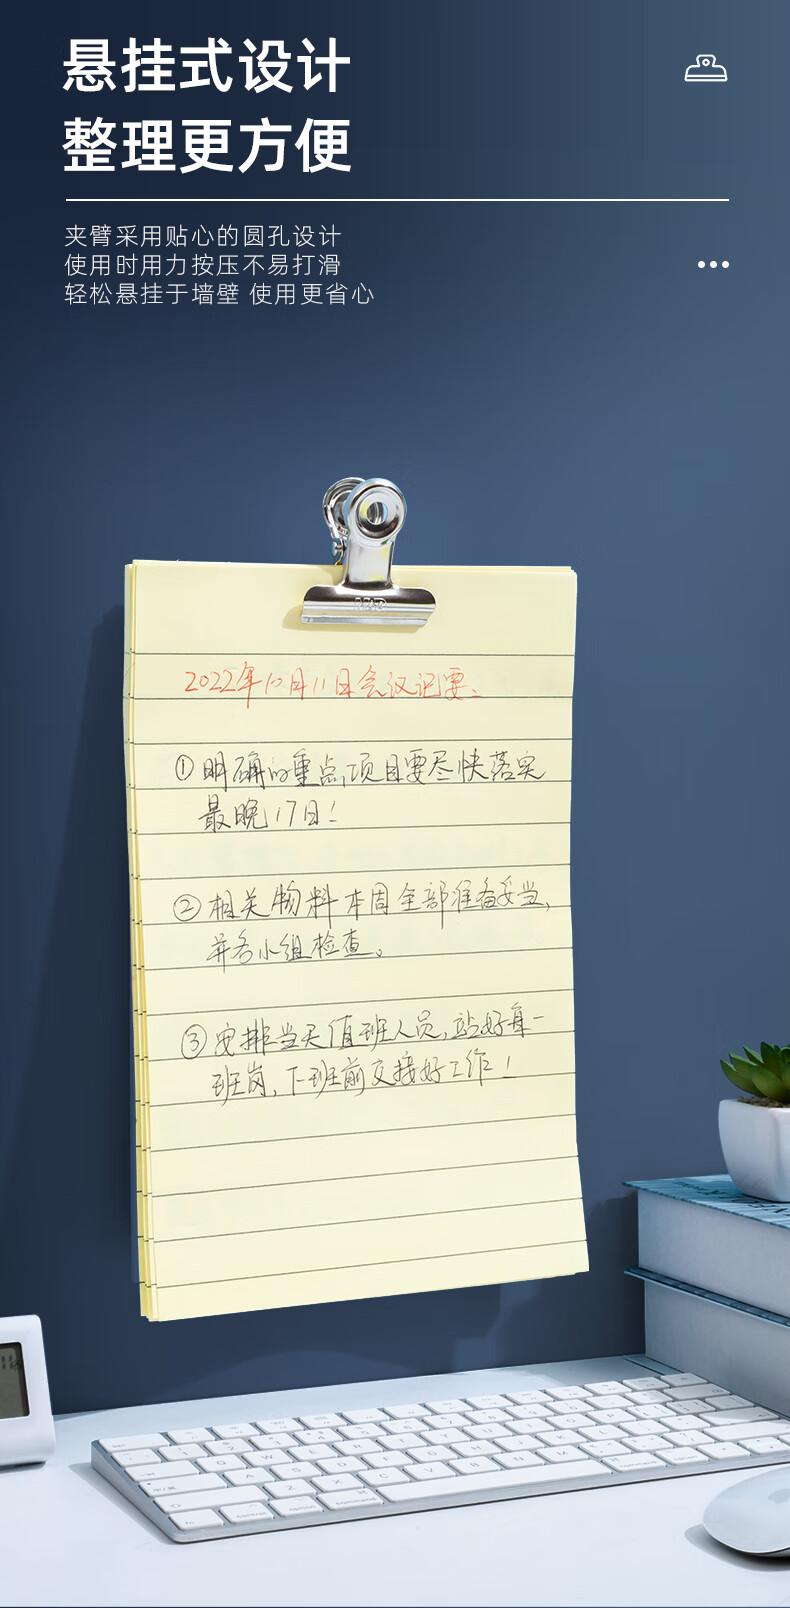 悬挂式设计
整理更方便
夹臂采用贴心的圆孔设计
使用时用力按压不易打滑
轻松悬挂于墙壁 使用更省心
2022年10月11日会议记要、
①明确的重点,项目要尽快落实
最晚17日!
②相关物料本周全部准备妥当,
并各小组检查。
③安排当天值班人员,站好每一
班岗,下班前交接好工作!